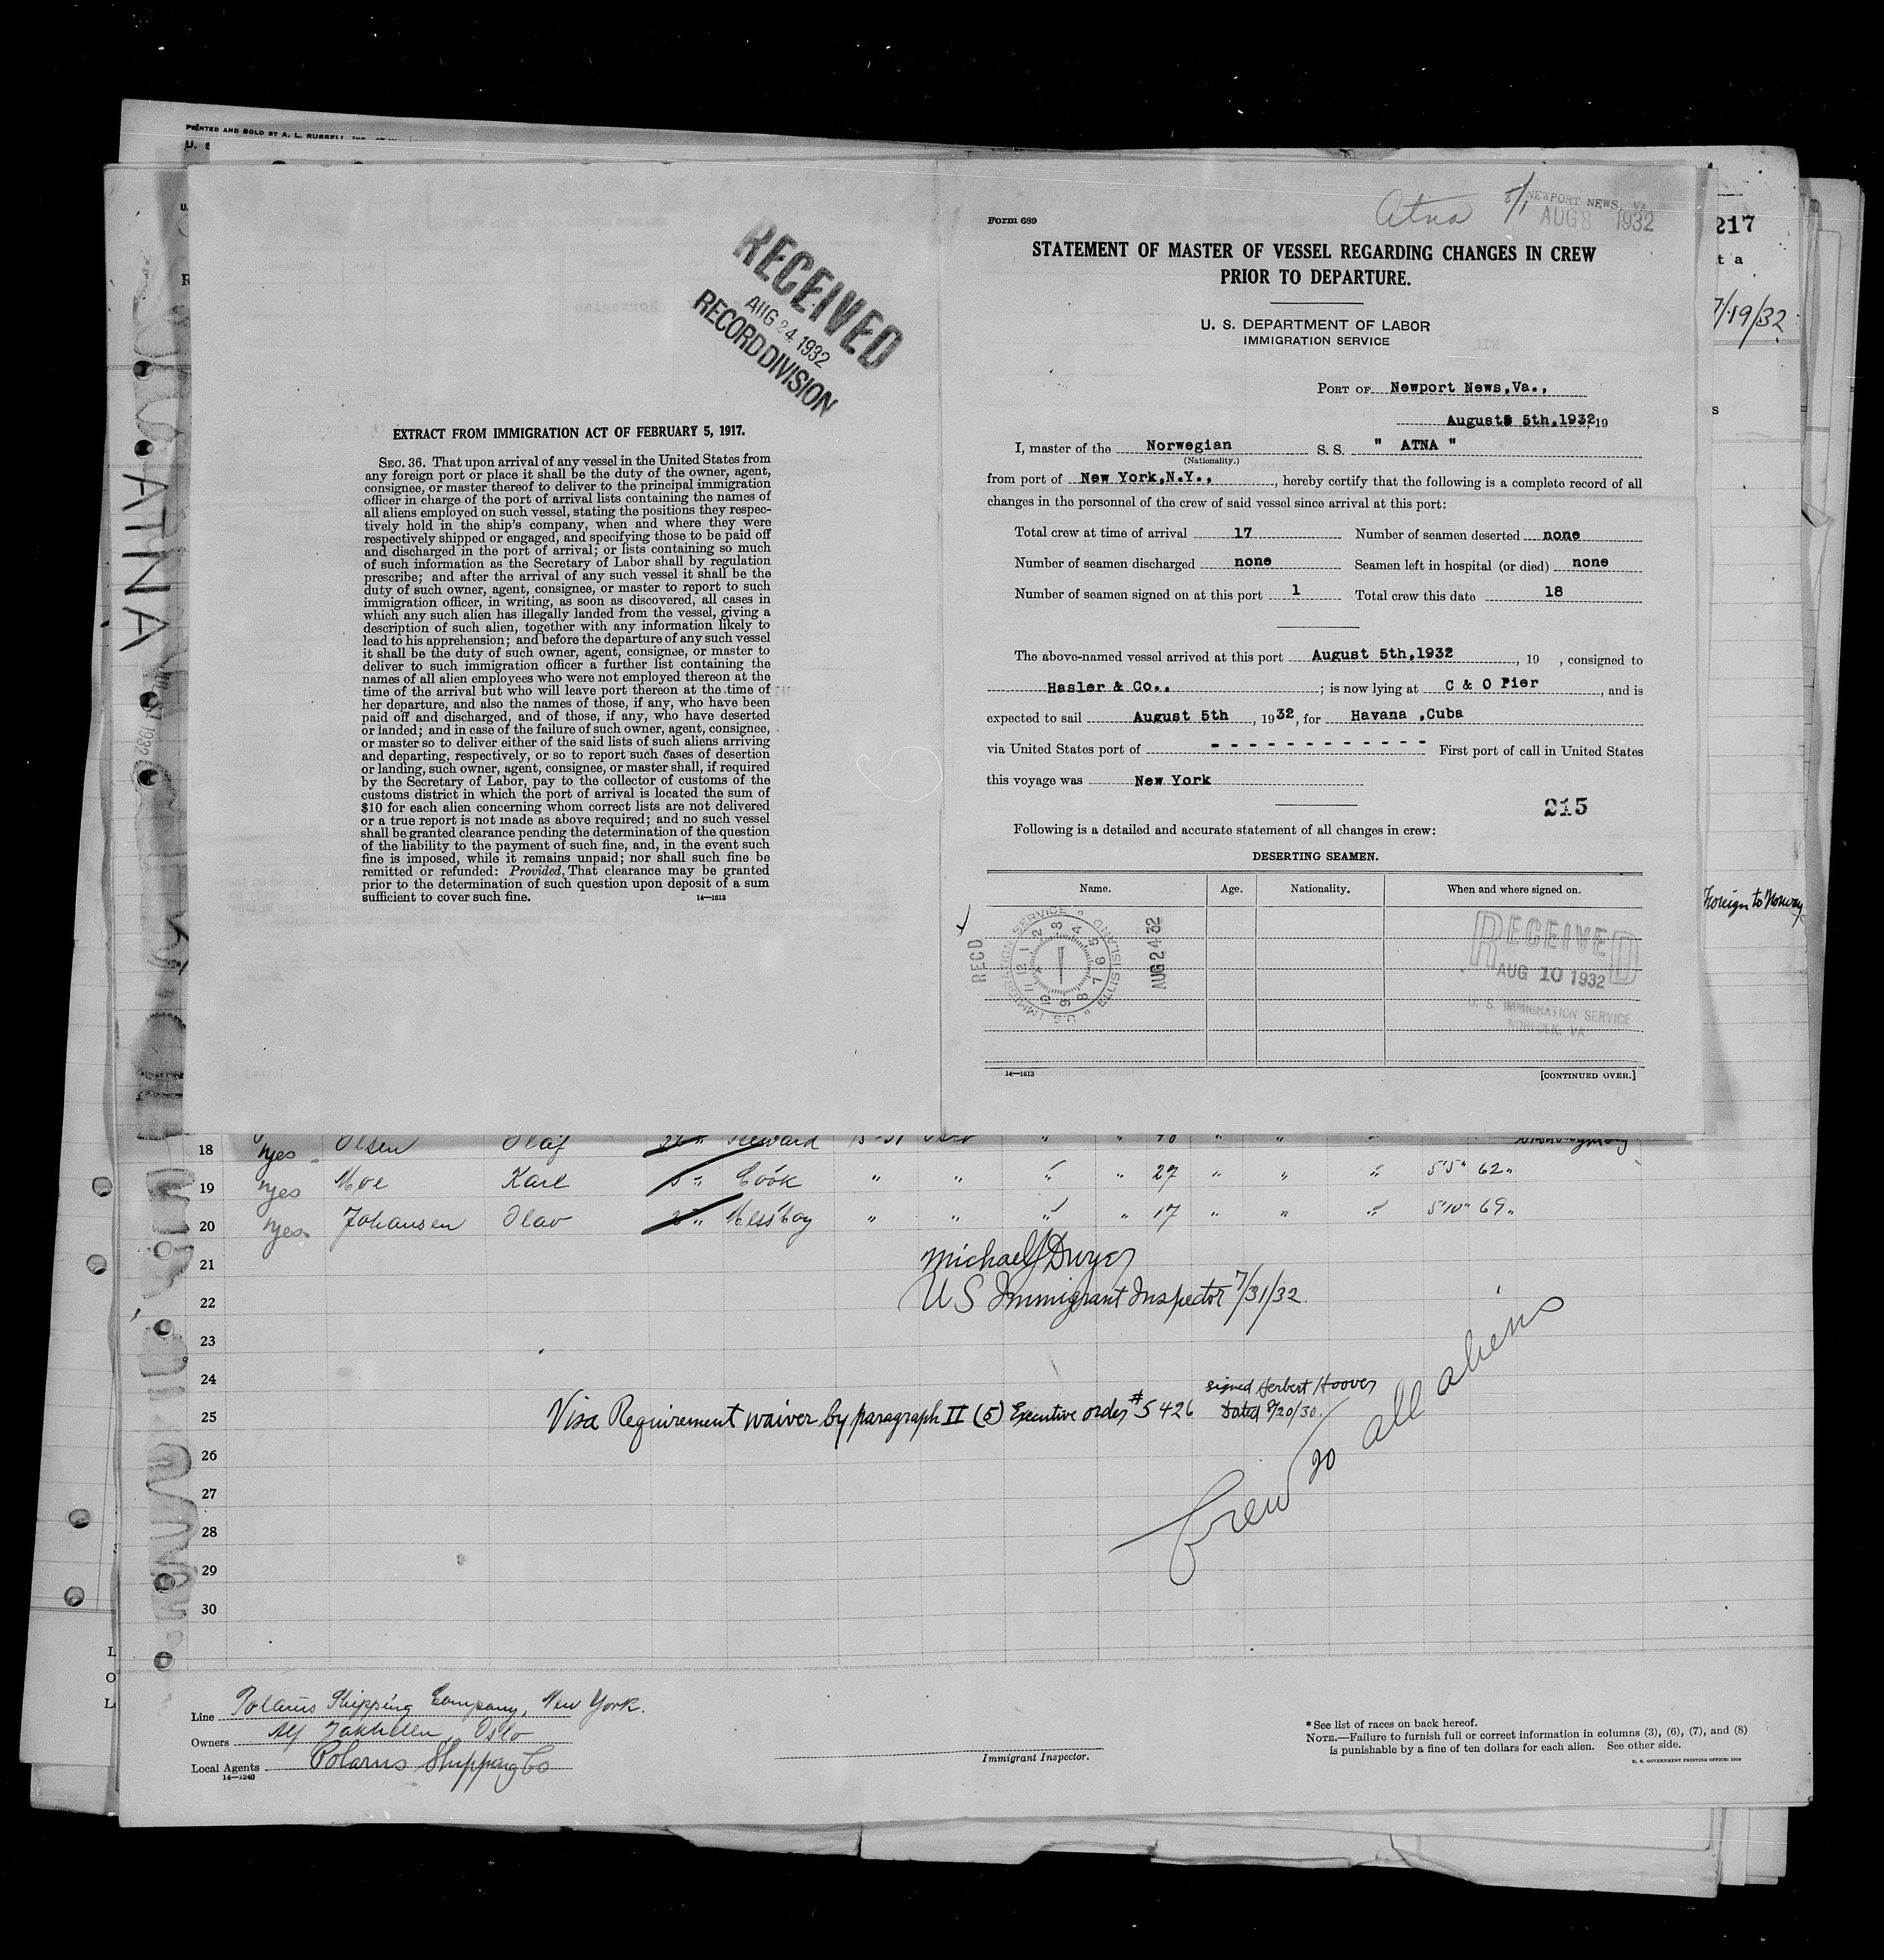 PRINTED AND SOLD BY A. L. RUSSELL
U. S
RECEIVED
AUG 24 1932
RECORD DIVISION
EXTRACT FROM IMMIGRATION ACT OF FEBRUARY 5, 1917.
SEC. 36. That upon arrival of any vessel in the United States from
any foreign port or place it shall be the duty of the owner, agent,
consignee, or master thereof to deliver to the principal immigration
officer in charge of the port of arrival lists containing the names of
all aliens employed on such vessel, stating the positions they respec-
tively hold in the ship's company, when and where they were
respectively shipped or engaged, and specifying those to be paid off
and discharged in the port of arrival; or lists containing so much
of such information as the Secretary of Labor shall by regulation
prescribe; and after the arrival of any such vessel it shall be the
duty of such owner, agent, consignee, or master to report to such
immigration officer, in writing, as soon as discovered, all cases in
which any such alien has illegally landed from the vessel, giving a
description of such alien, together with any information likely to
lead to his apprehension; and before the departure of any such vessel
it shall be the duty of such owner, agent, consignee, or master to
deliver to such immigration officer a further list containing the
names of all alien employees who were not employed thereon at the
time of the arrival but who will leave port thereon at the time of
her departure, and also the names of those, if any, who have been
paid off and discharged, and of those, if any, who have deserted
or landed; and in case of the failure of such owner, agent, consignee,
or master so to deliver either of the said lists of such aliens arriving
and departing, respectively, or so to report such cases of desertion
or landing, such owner, agent, consignee, or master shall, if required
by the Secretary of Labor, pay to the collector of customs of the
customs district in which the port of arrival is located the sum of
$10 for each alien concerning whom correct lists are not delivered
or a true report is not made as above required; and no such vessel
shall be granted clearance pending the determination of the question
of the liability to the payment of such fine, and, in the event such
fine is imposed, while it remains unpaid; nor shall such fine be
remitted or refunded: Provided, That clearance may be granted
prior to the determination of such question upon deposit of a sum
sufficient to cover such fine.
14—1613
ATNA
Form 689
Atna 8/1
NEWPORT NEWS, VA
AUG 8 1932
STATEMENT OF MASTER OF VESSEL REGARDING CHANGES IN CREW
PRIOR TO DEPARTURE.
U. S. DEPARTMENT OF LABOR
IMMIGRATION SERVICE
PORT OF Newport News,Va.,
August 5th,1932,19
I, master of the Norwegian S. S. " ATNA "
(Nationality.)
from port of New York,N.Y., , hereby certify that the following is a complete record of all
changes in the personnel of the crew of said vessel since arrival at this port:
Total crew at time of arrival 17 Number of seamen deserted none
Number of seamen discharged none Seamen left in hospital (or died) none
Number of seamen signed on at this port 1 Total crew this date 18
The above-named vessel arrived at this port August 5th,1932 , 19 , consigned to
Hasler & Co., ; is now lying at C & O Pier , and is
expected to sail August 5th , 1932, for Havana ,Cuba
via United States port of - - - - - - - - - - - - First port of call in United States
this voyage was New York
215
Following is a detailed and accurate statement of all changes in crew:
DESERTING SEAMEN.
Name. Age. Nationality. When and where signed on.
RECD
U.S. IMMIGRATION SERVICE ELLIS ISLAND
1 2 3 4 5 6 7 8 9 10 11 12
AUG 24 32
RECEIVED
AUG 10 1932
U. S. IMMIGRATION SERVICE
NORFOLK, VA
14—1613 [CONTINUED OVER.]
217
t a
7/19/32
s
Foreign to Norway
18 yes Olsen Olaf Steward
19 yes Moe Karl 5 " Cook " " " " 27 " " " 5'5" 62 "
20 yes Johansen Olav " Messboy " " " " 17 " " " 5'10" 69 "
21
Michael J Dwyer
22
US Immigrant Inspector 7/31/32
23
24
signed Herbert Hoover
25 Visa Requirement waiver by paragraph II (5) Executive order #5426 Dated 9/20/30
Crew 20 all aliens
26
27
28
29
30
Line Polarus Shipping Company, New York.
Owners Oslo
Local Agents Polarus Shipping Co
14—1240
Immigrant Inspector.
*See list of races on back hereof.
NOTE.—Failure to furnish full or correct information in columns (3), (6), (7), and (8)
is punishable by a fine of ten dollars for each alien. See other side.
U. S. GOVERNMENT PRINTING OFFICE: 1929